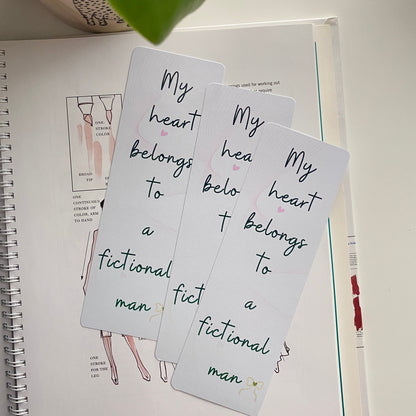 My
heart
belongs
to
a
fictional
man
My
hea
belo
t
fictio
My
heart
belongs
to
a
fictional
man
ONE
STROKE
OF
COLOR
BROAD
TIP
ONE
CONTINUOUS
STROKE OF
COLOR, ARM
TO HAND
ONE
STROKE
FOR THE
LEG
used for working out
require